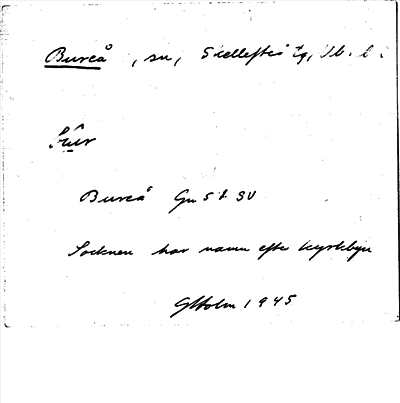 Bureå, sn, Skellefteå tg, Vb. l.
Bureå Gu 5 f SV
Socknen har namn efter kyrkbyn
G Holm 1945